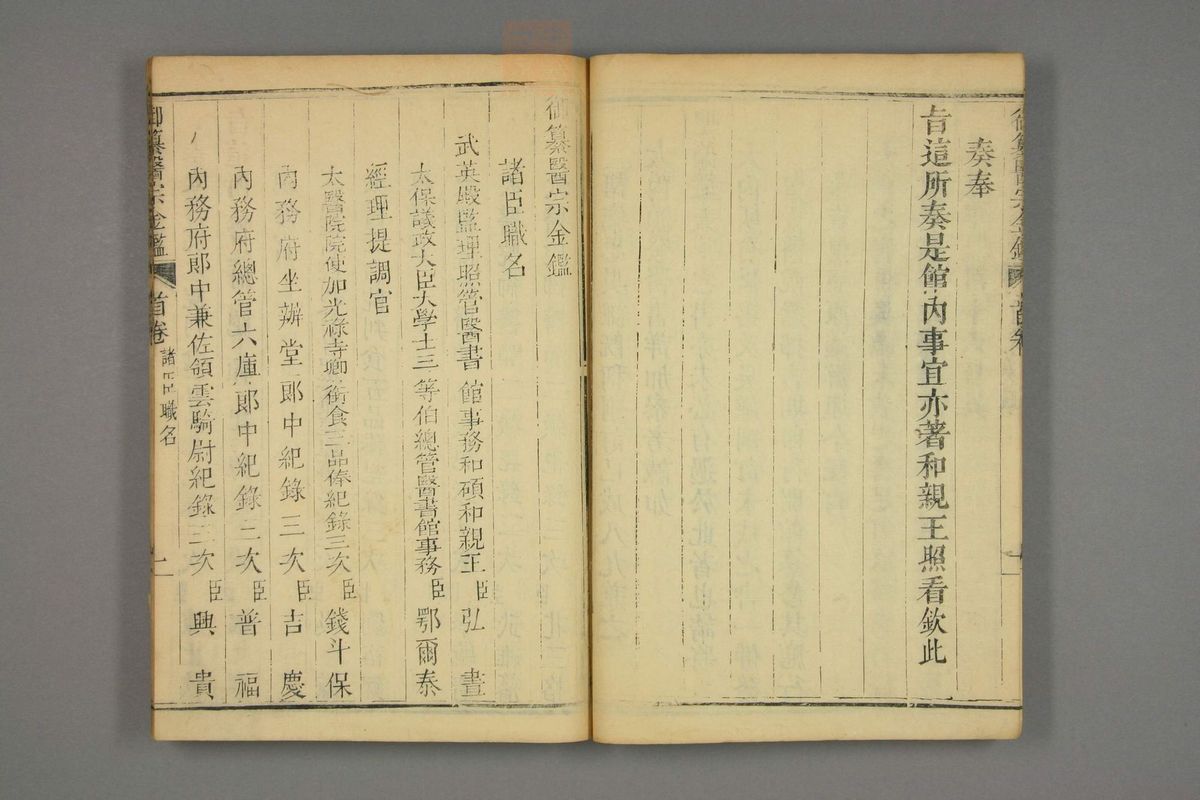 奏奉
旨這所奏是館內事宜亦著和親王照看欽此
御纂醫宗金鑑
諸臣職名
武英殿監理照管醫書館事務和碩和親王臣弘晝
太保議政大臣大學士三等伯總管醫書館事務臣鄂爾泰
經理提調官
太醫院院使加光祿寺卿銜食三品俸紀錄三次臣錢斗保
內務府坐辦堂郎中紀錄三次臣吉慶
內務府總管六庫郎中紀錄三次臣普福
內務府郎中兼佐領雲騎尉紀錄三次臣興貴
御纂醫宗金鑑 首卷 諸臣職名 一